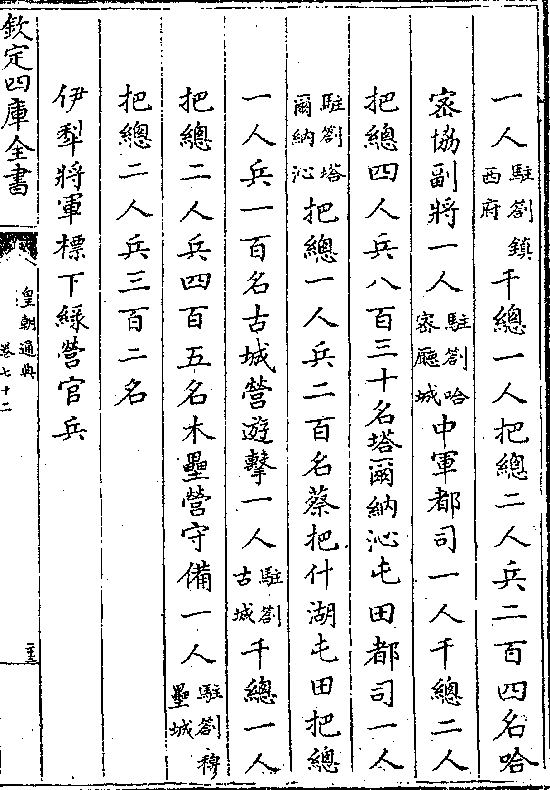 一人駐劄鎮西府千總一人把總二人兵二百四名哈
密協副將一人駐劄哈密廳城中軍都司一人千總二人
把總四人兵八百三十名塔爾納沁屯田都司一人
駐劄塔爾納沁把總一人兵二百名蔡把什湖屯田把總
一人兵一百名古城營遊擊一人駐劄古城千總一人
把總二人兵四百五名木壘營守備一人駐劄穆壘城
把總二人兵三百二名
伊犁將軍標下綠營官兵
欽定四庫全書
皇朝通典
卷七十二